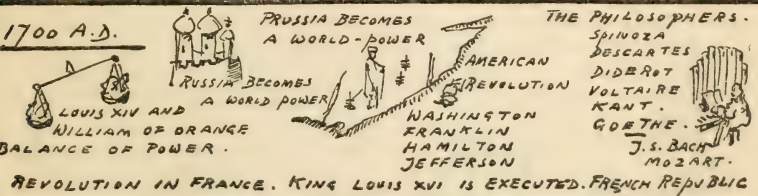 1700 A.D.
LOUIS XIV AND
WILLIAM OF ORANGE
BALANCE OF POWER.
RUSSIA BECOMES
A WORLD POWER
PRUSSIA BECOMES
A WORLD-POWER
AMERICAN
REVOLUTION
WASHINGTON
FRANKLIN
HAMILTON
JEFFERSON
THE PHILOSOPHERS.
SPINOZA
DESCARTES
DIDEROT
VOLTAIRE
KANT.
GOETHE.
J.S. BACH
MOZART.
REVOLUTION IN FRANCE. KING LOUIS XVI IS EXECUTED. FRENCH REPUBLIC